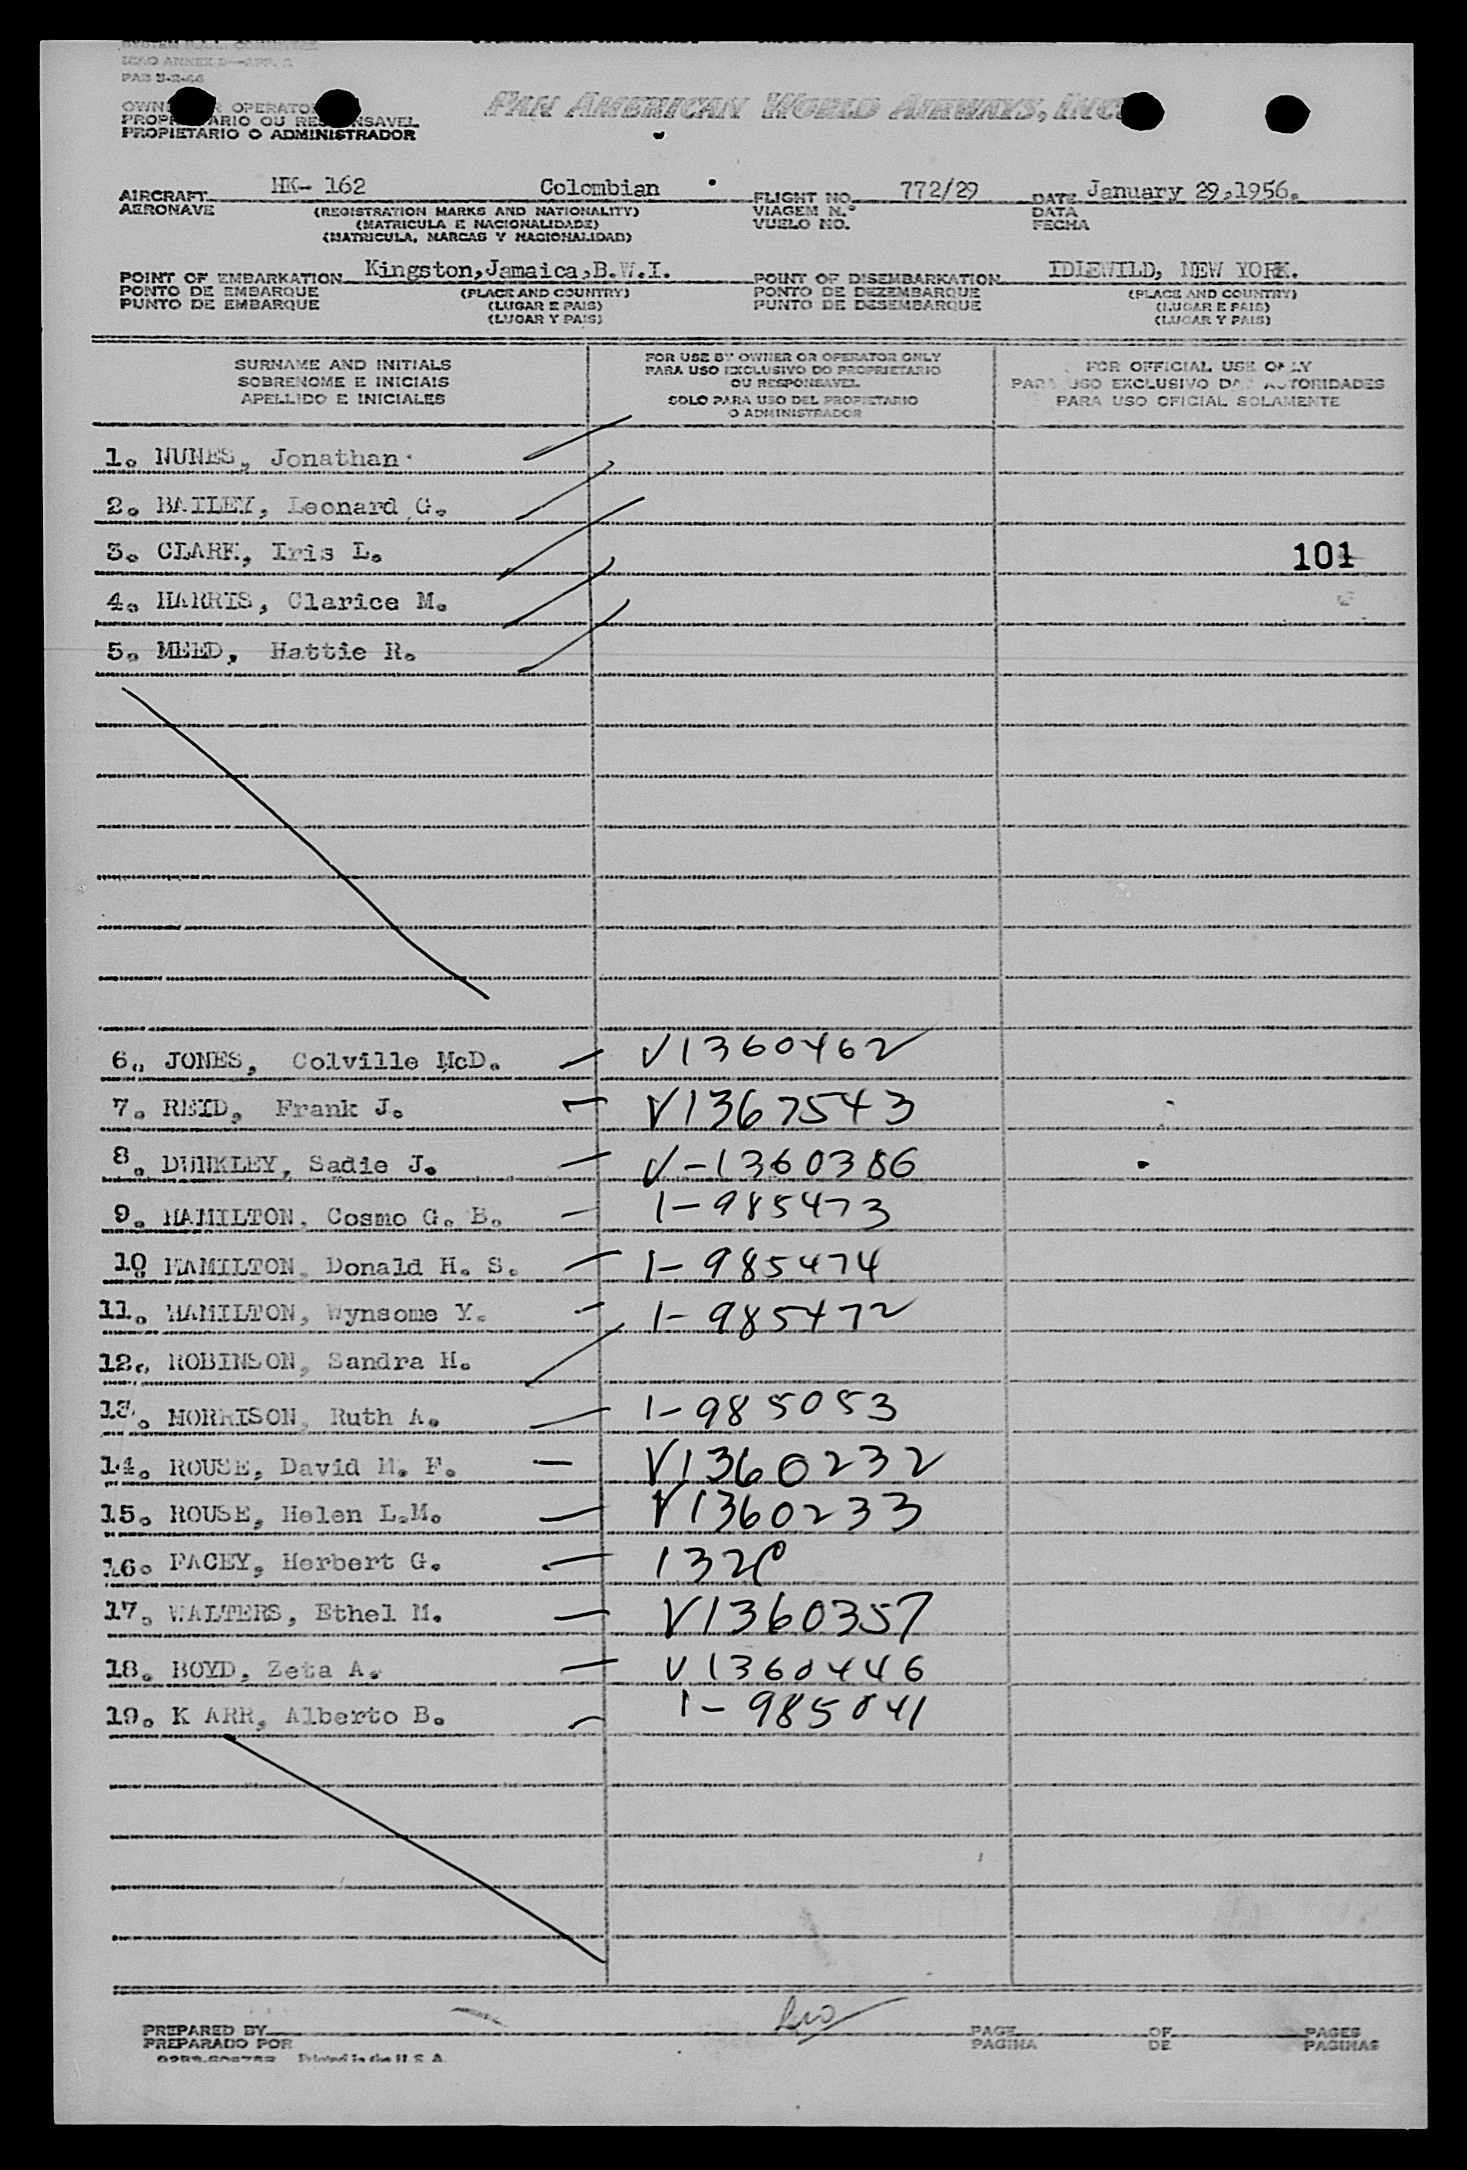 ICAO ANNEX 9—APP. 2
PAB 3-2-46
OPERATOR
PROPRIETARIO OU RESPONSAVEL
PROPIETARIO O ADMINISTRADOR
PAN AMERICAN WORLD AIRWAYS, INC.
AIRCRAFT HK- 162 Colombian FLIGHT NO. 772/29 DATE January 29,1956.
AERONAVE (REGISTRATION MARKS AND NATIONALITY) VIAGEM N.° DATA
(MATRICULA E NACIONALIDADE) VUELO NO. FECHA
(MATRICULA, MARCAS Y NACIONALIDAD)
POINT OF EMBARKATION Kingston,Jamaica,B.W.I. POINT OF DISEMBARKATION IDLEWILD, NEW YORK.
PONTO DE EMBARQUE (PLACE AND COUNTRY) PONTO DE DEZEMBARQUE (PLACE AND COUNTRY)
PUNTO DE EMBARQUE (LUGAR E PAIS) PUNTO DE DESEMBARQUE (LUGAR E PAIS)
(LUGAR Y PAIS) (LUGAR Y PAIS)
SURNAME AND INITIALS
SOBRENOME E INICIAIS
APELLIDO E INICIALES
FOR USE BY OWNER OR OPERATOR ONLY
PARA USO EXCLUSIVO DO PROPRIETARIO
OU RESPONSAVEL
SOLO PARA USO DEL PROPIETARIO
O ADMINISTRADOR
FOR OFFICIAL USE ONLY
PARA USO EXCLUSIVO DAS AUTORIDADES
PARA USO OFICIAL SOLAMENTE
1. NUNES, Jonathan
2. BAILEY, Leonard G.
3. CLARK, Iris L. 101
4. HARRIS, Clarice M.
5. MEED, Hattie R.
6. JONES, Colville McD. V1360462
7. REID, Frank J. V1367543
8. DUNKLEY, Sadie J. V-1360386
9. HAMILTON, Cosmo G. B. 1-985473
10. HAMILTON, Donald H. S. 1-985474
11. HAMILTON, Wynsome Y. 1-985472
12. ROBINSON, Sandra H.
13. MORRISON, Ruth A. 1-985053
14. ROUSE, David M. F. V1360232
15. ROUSE, Helen L.M. V1360233
16. FACEY, Herbert G. 132
17. WALTERS, Ethel M. V1360357
18. BOYD, Zeta A. V1360446
19. K ARR, Alberto B. 1-985041
PREPARED BY PAGE OF PAGES
PREPARADO POR PAGINA DE PAGINAS
Printed in the U.S.A.